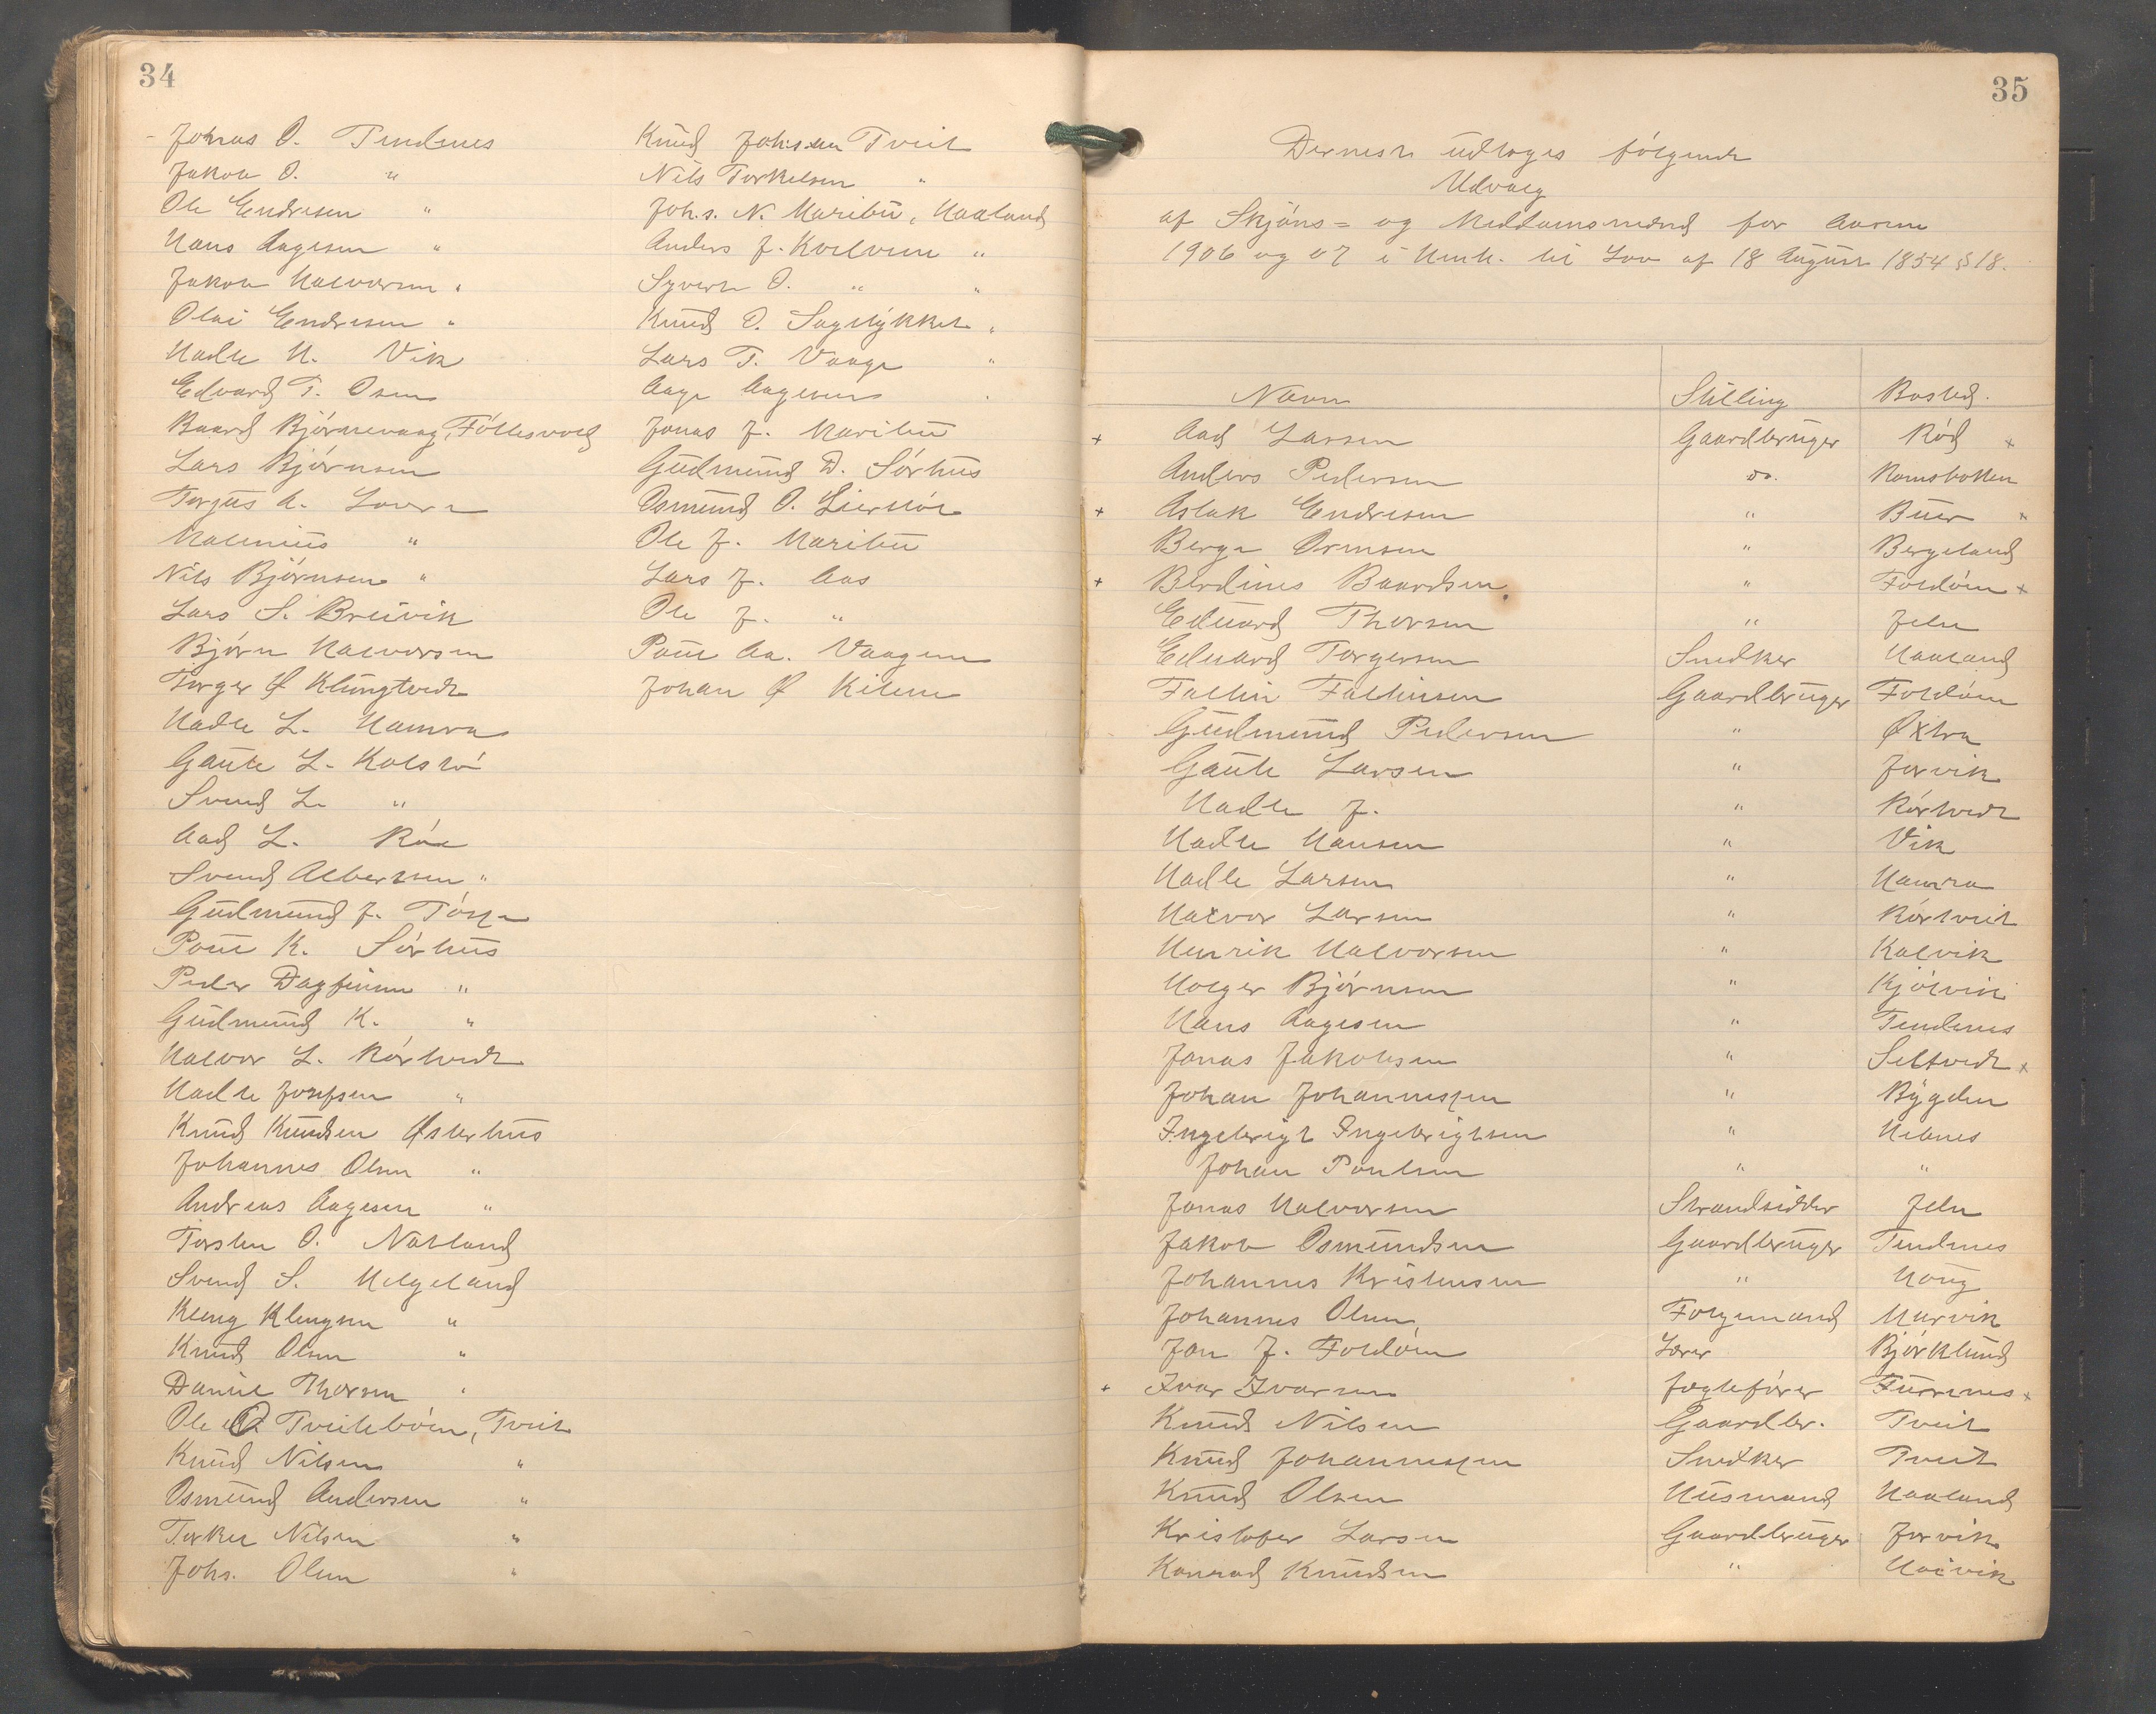 34
Johnas O. Tendenes
Jakob O. "
Ole Endresen "
Hans Aagesen "
Jakob Halvorsen "
Olai Endresen "
Hadle H. Vik
Edvard T. Osen
Baard Bjørnevaag, Føllesvold
Lars Bjørnsen
Torgus A. Lovra
Malenius "
Nils Bjørnsen "
Lars S. Breivik
Bjørn Halvorsen
Torger Ø Klungtvedt
Hadle L. Hamra
Gaute L. Kolstø
Svend L. "
Aad L. Røe
Svend Albertsen "
Gudmund J.
Poul K. Sørhus
Peder Dagfinsen "
Gudmund K. "
Halvor L. Rørtvedt
Hadle Josefsen "
Knud Knudsen Østerhus
Johannes Olsen "
Andreas Aagesen "
Torsten O. Natland
Svend S. Helgeland
Kleng Klengsen "
Knud Olsen "
Daniel Thorsen "
Ole O. Tveitebøen, Tveit
Knud Nilsen "
Osmund Andersen "
Torkel Nilsen "
Johs. Olsen "
Knud Johnsen Tveit
Nils Torkelsen "
Johs. N. Maribu, Haaland
Anders J. Kvelven "
Syvert O. " "
Knud O. Sagstykket "
Lars T. Vaage "
Aage Aagesen
Jonas J. Maribu
Gudmund D. Sørhus
Osmund O. Lierstøl
Ole J. Maribu
Lars J. Aas
Ole J. "
Poul Aa. Vaagene
Johan Ø Kilene
35
Dernest udtoges følgende
Udvalg
af Skjøns= og Meddomsmænd for Aarene
1906 og 07 i Henh. til Lov af 18 August 1854 § 18.
Navn Stilling Bosted.
+ Aad Larsen Gaardbruger Rød +
Anders Pedersen do. Ramsbotten
+ Aslak Endresen " Buer +
Berge Ormsen " Bergeland
+ Berdines Baardsen. " Foldøen +
Edvard Thorsen " Jelse
Edvard Torgersen Snedker Haaland
Faltin Faltinsen Gaardbruger Foldøen
Gudmund Pedersen " Øxtra
Gaute Larsen " Jorvik
Hadle J. " Rørtvedt
Hadle Hansen " Vik
Hadle Larsen " Hamra
Halvor Larsen " Rørtveit
Henrik Halvorsen " Kalvik
Holger Bjørnsen " Kjølvik
Hans Aagesen " Tendenes
Jonas Jakobsen " Seltvedt +
Johan Johannessen " Bygden
Ingebrigt Ingebrigtsen " Hebnes
Johan Poulsen " "
Jonas Halvorsen Strandsidder Jelse
Jakob Osmundsen Gaardbruger Tendenes
Johannes Kristensen " Houg
Johannes Olsen Forgemand Marvik
Jon J. Foldøen Lærer Bjørklund
+ Ivar Ivarsen Jægtefører Furenes +
Knud Nilsen Gaardbr. Tveit
Knud Johannessen Snedker Tveit
Knud Olsen Husmand Haaland
Kristofer Larsen Gaardbruger Jorvik
Konrad Knudsen " Hoivik